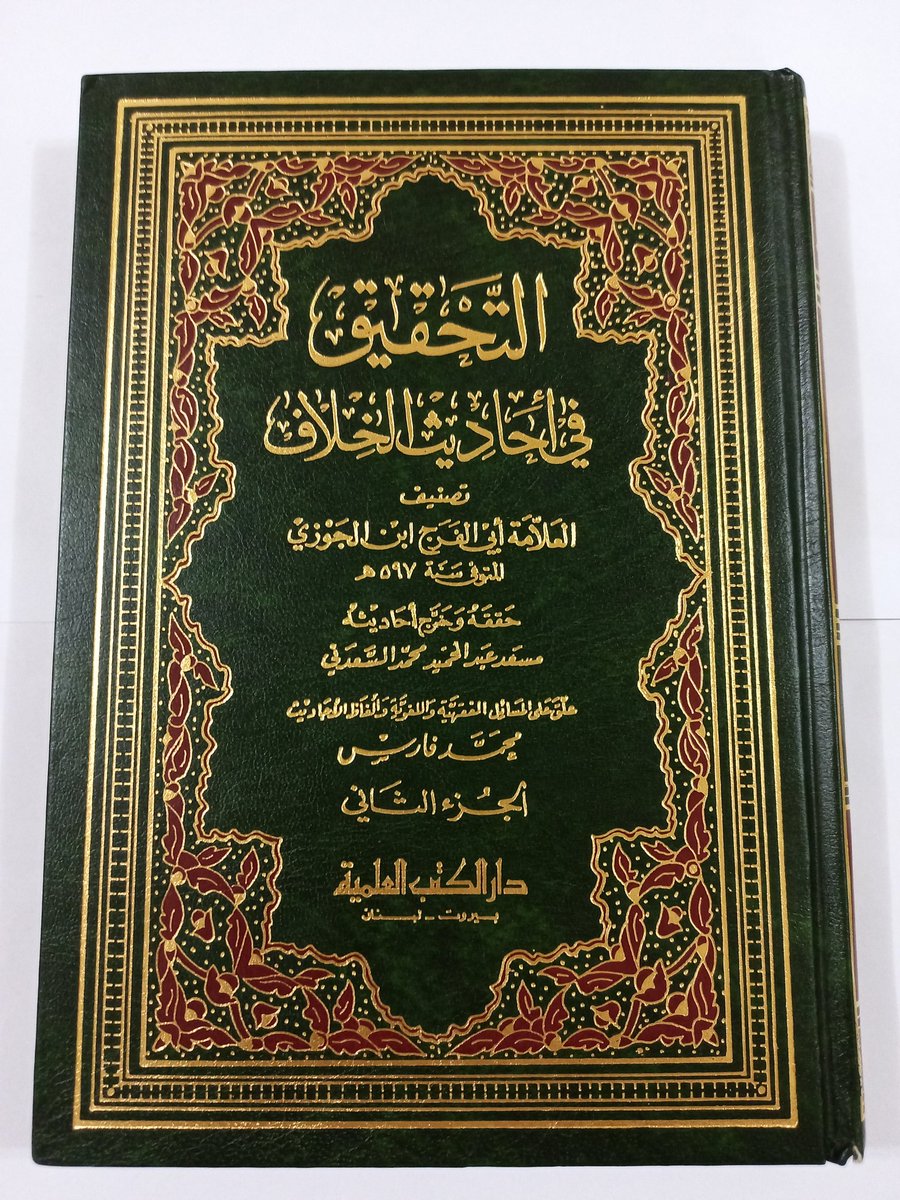 التَّحْقِيق
في أحَاديث الخلاف
تصنيف
العَلاّمَة أبي الفَرَج ابن الجَوْزي
المتوفى سَنَة ٥٩٧ هـ
حَققهُ وَخَرَّج أحَاديثه
مسعَد عَبد الحميد محمّد السَّعدَني
علّق عَلى المسَائل الفقهيّة وَاللغويّة وَألفاظ الأحاديث
محمَّد فارس
الجُزء الثاني
دار الكتب العلمية
بيروت - لبنان